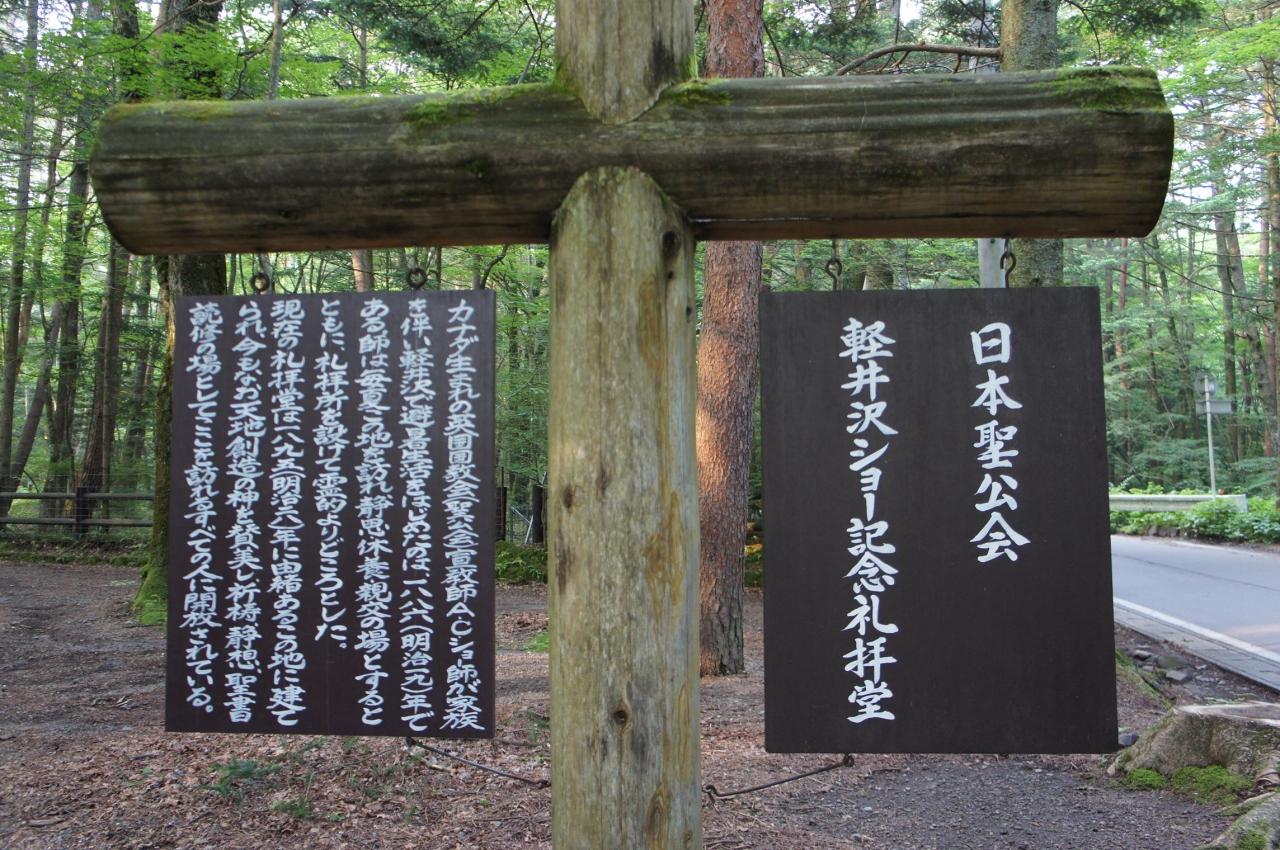 日本聖公会
軽井沢ショー記念礼拝堂
カナダ生まれの英国国教会(聖公会)宣教師A.C.ショー師が家族
を伴い、軽井沢で避暑生活をはじめたのは一八八六(明治一九)年で
ある。師は毎夏この地を訪れ、静思、休養、親交の場とすると
ともに、礼拝所を設けて霊的よりどころとした。
現在の礼拝堂は一八九五(明治二八)年に由緒あるこの地に建て
られ、今もなお天地創造の神を賛美し、祈祷、静想、聖書
読修の場としてここを訪れるすべての人に開放されている。